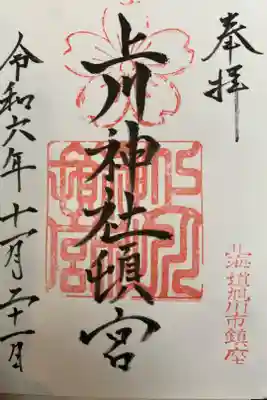 奉拝
北海道旭川市鎮座
上川神社頓宮
令和六年十一月二十一日